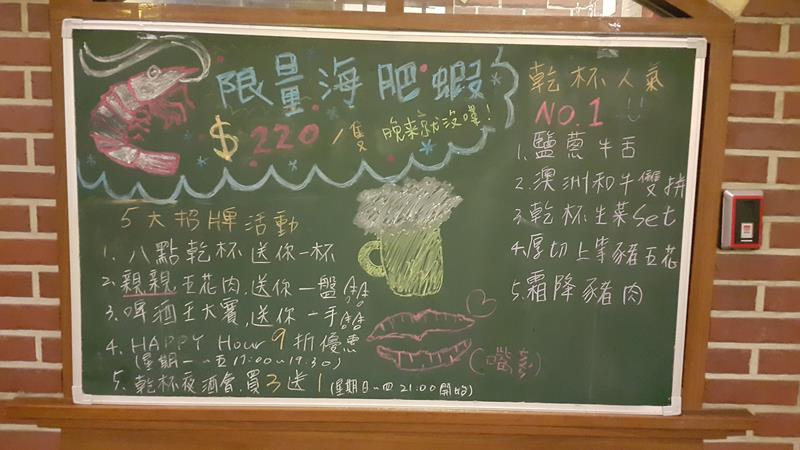 限量海肥蝦
$220/隻 晚來就沒囉!
乾杯人氣
NO.1
1.鹽蔥牛舌
2.澳洲和牛雙拚
3.乾杯生菜Set
4.厚切上等豬五花
5.霜降豬肉
5大招牌活動
1.八點乾杯送你一杯
2.親親五花肉.送你一盤
3.啤酒王大賽,送你一手
4.HAPPY Hour 9折優惠
(星期一~五17:00~19:30)
5.乾杯夜酒會.買3送1(星期日~四21:00開始)